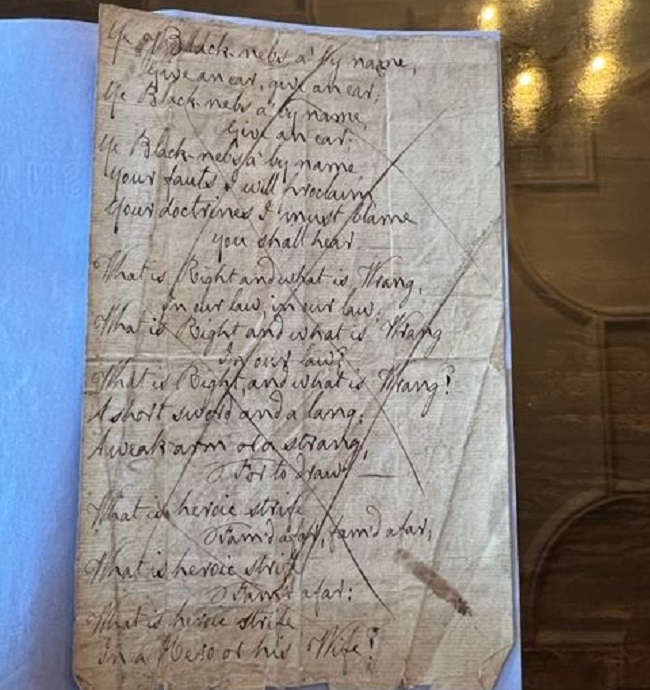 Ye Black-nebs a' by name,
Give an ear, give an ear;
Ye Black-nebs a' by name,
Give an ear;
Ye Black-nebs a' by name
Your fauts I will proclaim
Your doctrines I must blame
you shall hear
What is Right and what is Wrang,
In our law, in our law,
What is Right and what is Wrang
In our law?
What is Right, and what is Wrang?
A short sword and a lang,
A weak arm or a strang,
For to draw. —
What is heroic strife
Fam'd afar, fam'd afar,
What is heroic strife
Fam'd afar:
What is heroic strife
In a Hero or his Wife?